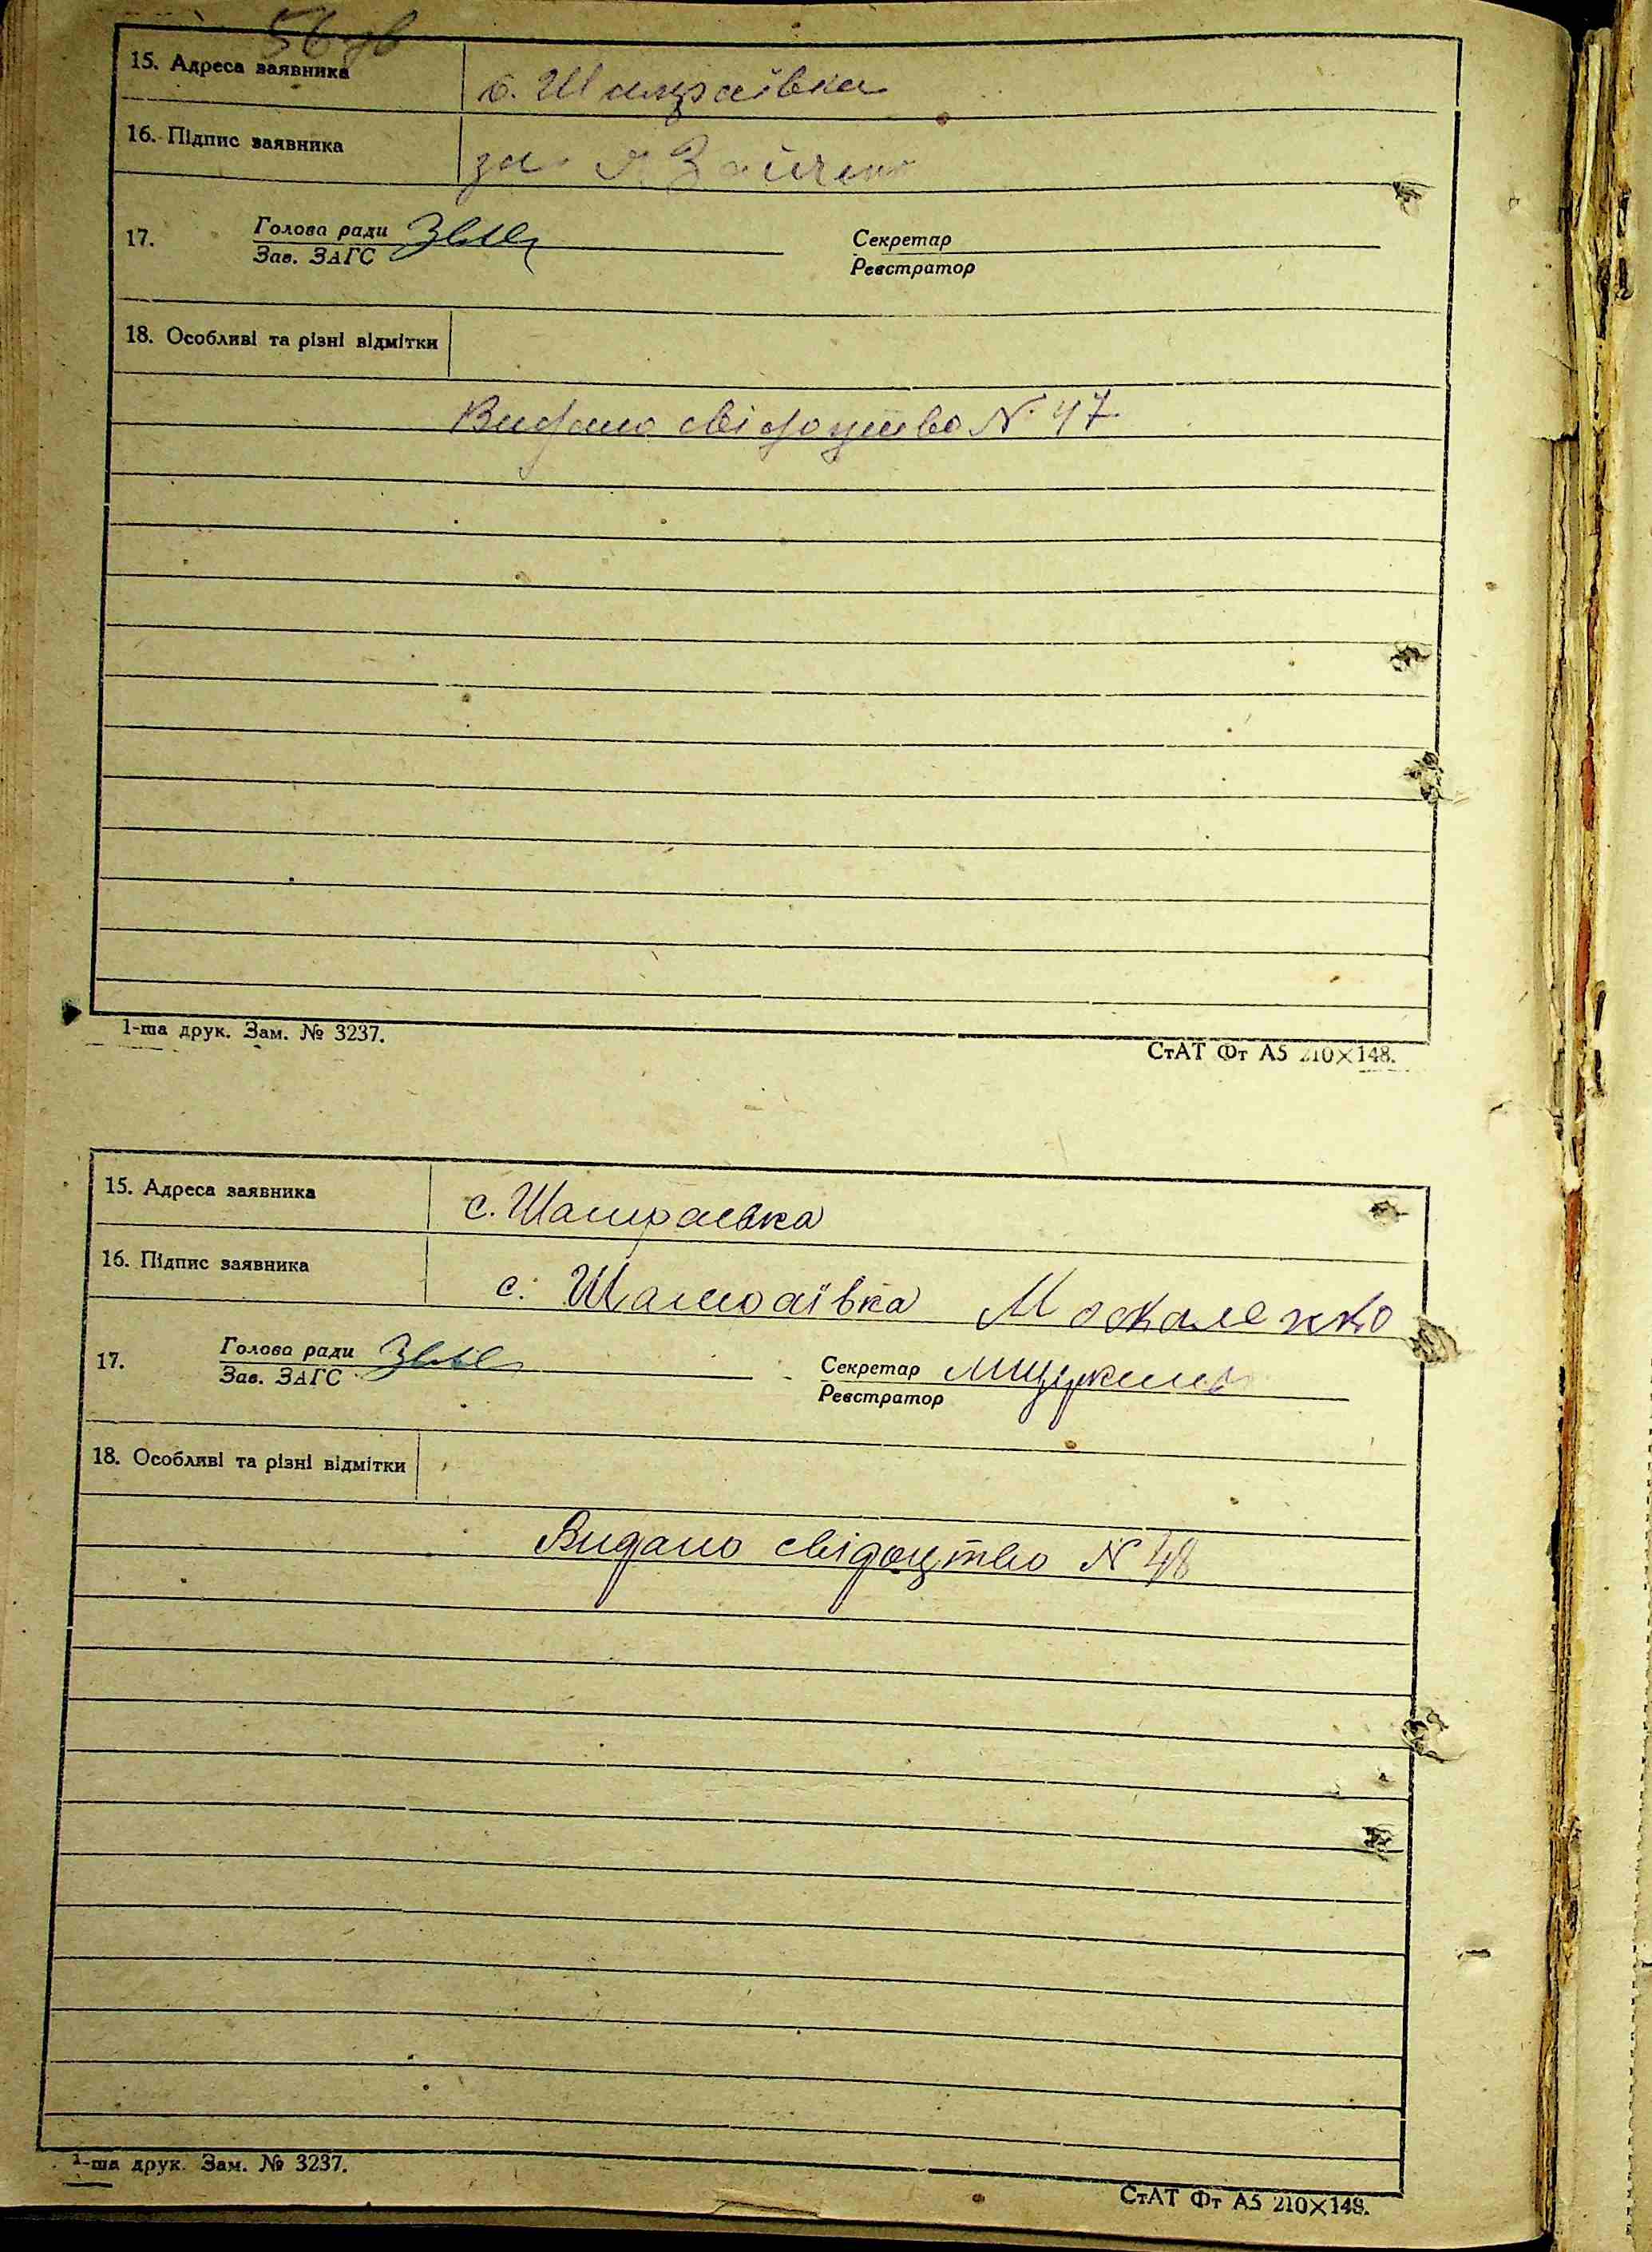 56 зв
15. Адреса заявника с. Шамраївка
16. Підпис заявника за
17. Голова ради Секретар
Зав. ЗАГС Реєстратор
18. Особливі та різні відмітки
Видано свідоцтво № 47
1-ша друк. Зам. № 3237. СтАТ Фт А5 210×148.
15. Адреса заявника с. Шамраєвка
16. Підпис заявника с. Шамраївка Москаленко
17. Голова ради Секретар
Зав. ЗАГС Реєстратор
18. Особливі та різні відмітки
Видано свідоцтво № 48
1-ша друк. Зам. № 3237. СтАТ Фт А5 210×148.